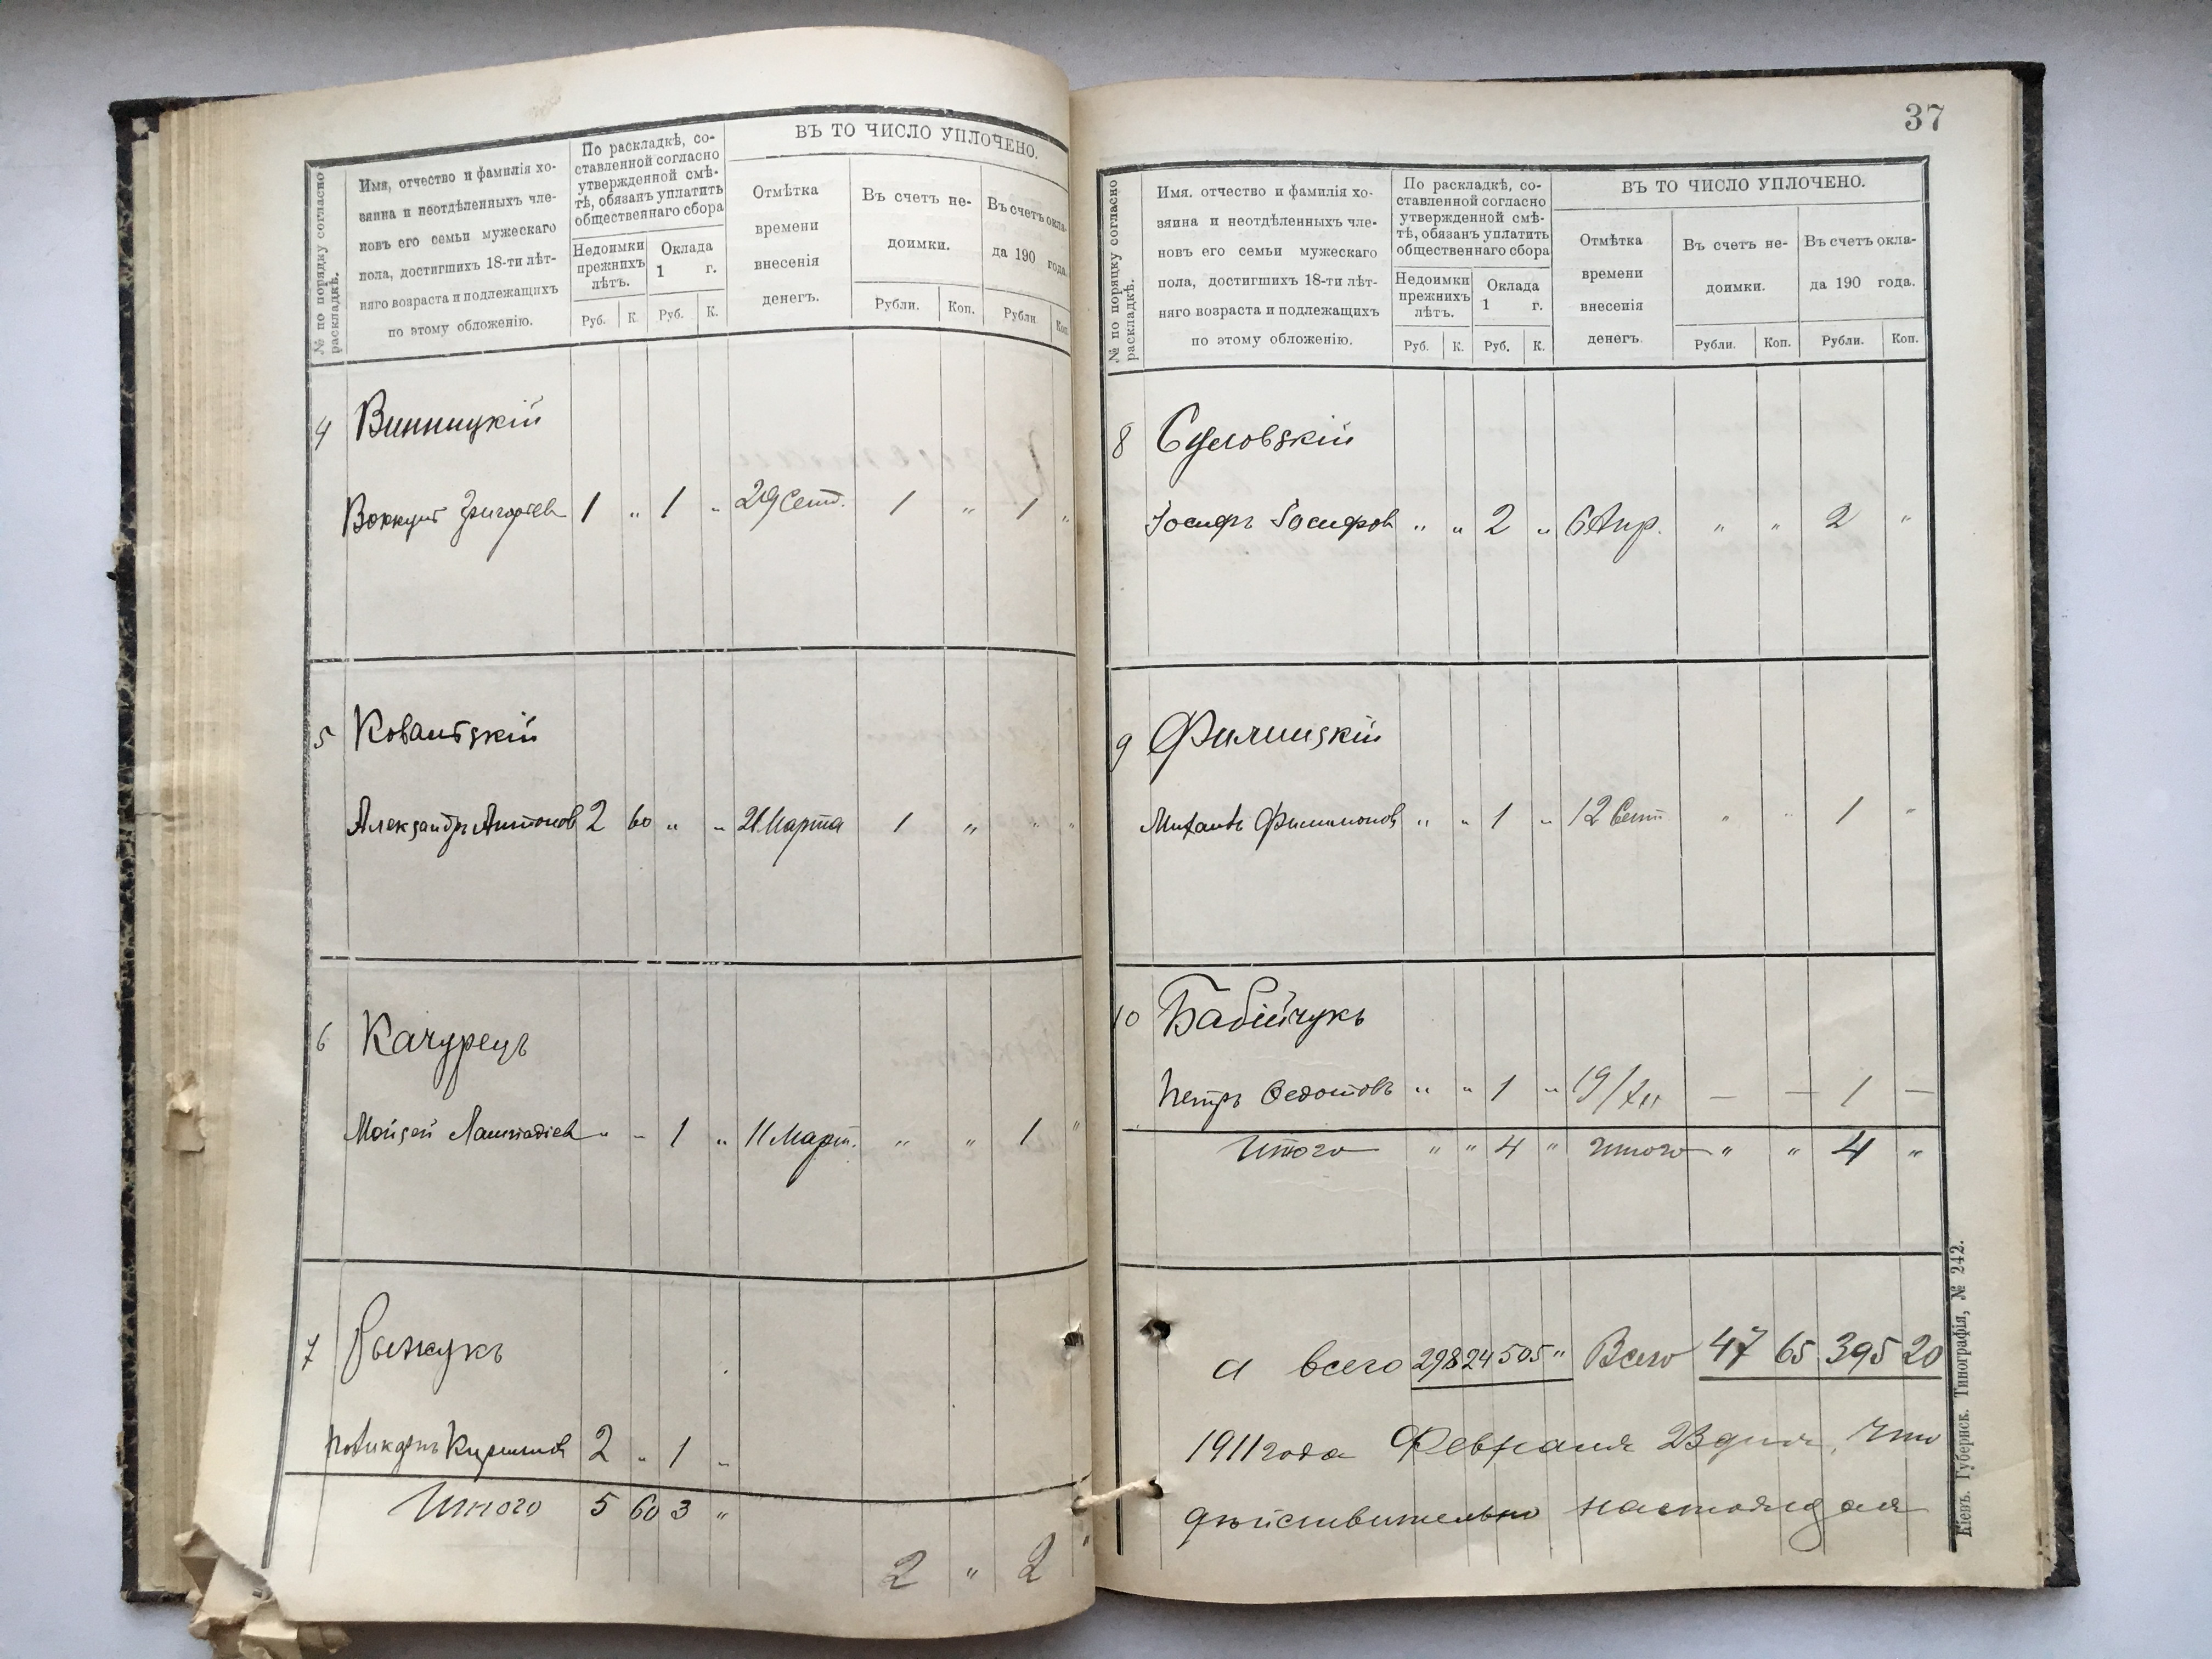 № по порядку согласно раскладкѣ.
Имя, отчество и фамилія хо-
зяина и неотдѣленныхъ чле-
новъ его семьи мужескаго
пола, достигшихъ 18-ти лѣт-
няго возраста и подлежащихъ
по этому обложенію.
По раскладкѣ, со-
ставленной согласно
утвержденной смѣ-
тѣ, обязанъ уплатить
общественнаго сбора
Недоимки
прежнихъ
лѣтъ.
Оклада
1 г.
Руб. К. Руб. К.
ВЪ ТО ЧИСЛО УПЛОЧЕНО.
Отмѣтка
времени
внесенія
денегъ.
Въ счетъ не-
доимки.
Въ счетъ окла-
да 190 года.
Рубли. Коп. Рубли Коп.
4 Винницкій
Григорьев 1 „ 1 „ 29 Сент. 1 „ 1 „
5
Александръ Антонов 2 60 „ „ 21 Марта 1 „ „ „
6 Качурецъ
Мойсей „ „ 1 „ 11 Март. „ „ 1 „
7
Поликарпъ Кирилов 2 „ 1 „
Итого 5 60 3 „
2 „ 2 „
37
№ по порядку согласно раскладкѣ.
Имя. отчество и фамилія хо-
зяина и неотдѣленныхъ чле-
новъ его семьи мужескаго
пола, достигшихъ 18-ти лѣт-
няго возраста и подлежащихъ
по этому обложенію.
По раскладкѣ, со-
ставленной согласно
утвержденной смѣ-
тѣ, обязанъ уплатить
общественнаго сбора
Недоимки
прежнихъ
лѣтъ.
Оклада
1 г.
Руб. К. Руб. К.
ВЪ ТО ЧИСЛО УПЛОЧЕНО.
Отмѣтка
времени
внесенія
денегъ.
Въ счетъ не-
доимки.
Въ счетъ окла-
да 190 года.
Рубли. Коп. Рубли. Коп.
8
Іосифъ Іосифов „ „ 2 „ 6 Апр. „ „ 2 „
9 Филинскій
Михаилъ Филимонов „ „ 1 „ 12 Сент „ „ 1 „
10 Бабійчукъ
Петръ Федотовъ „ „ 1 „ 19/XII — — 1 —
Итого „ „ 4 „ Итого „ „ 4 „
а всего 298 24 505 „ Всего 47 65 395 20
1911 года Февраля 23 дня, Что
дѣйствительно настоящая
Кіевъ. Губернск. Типографія, № 242.